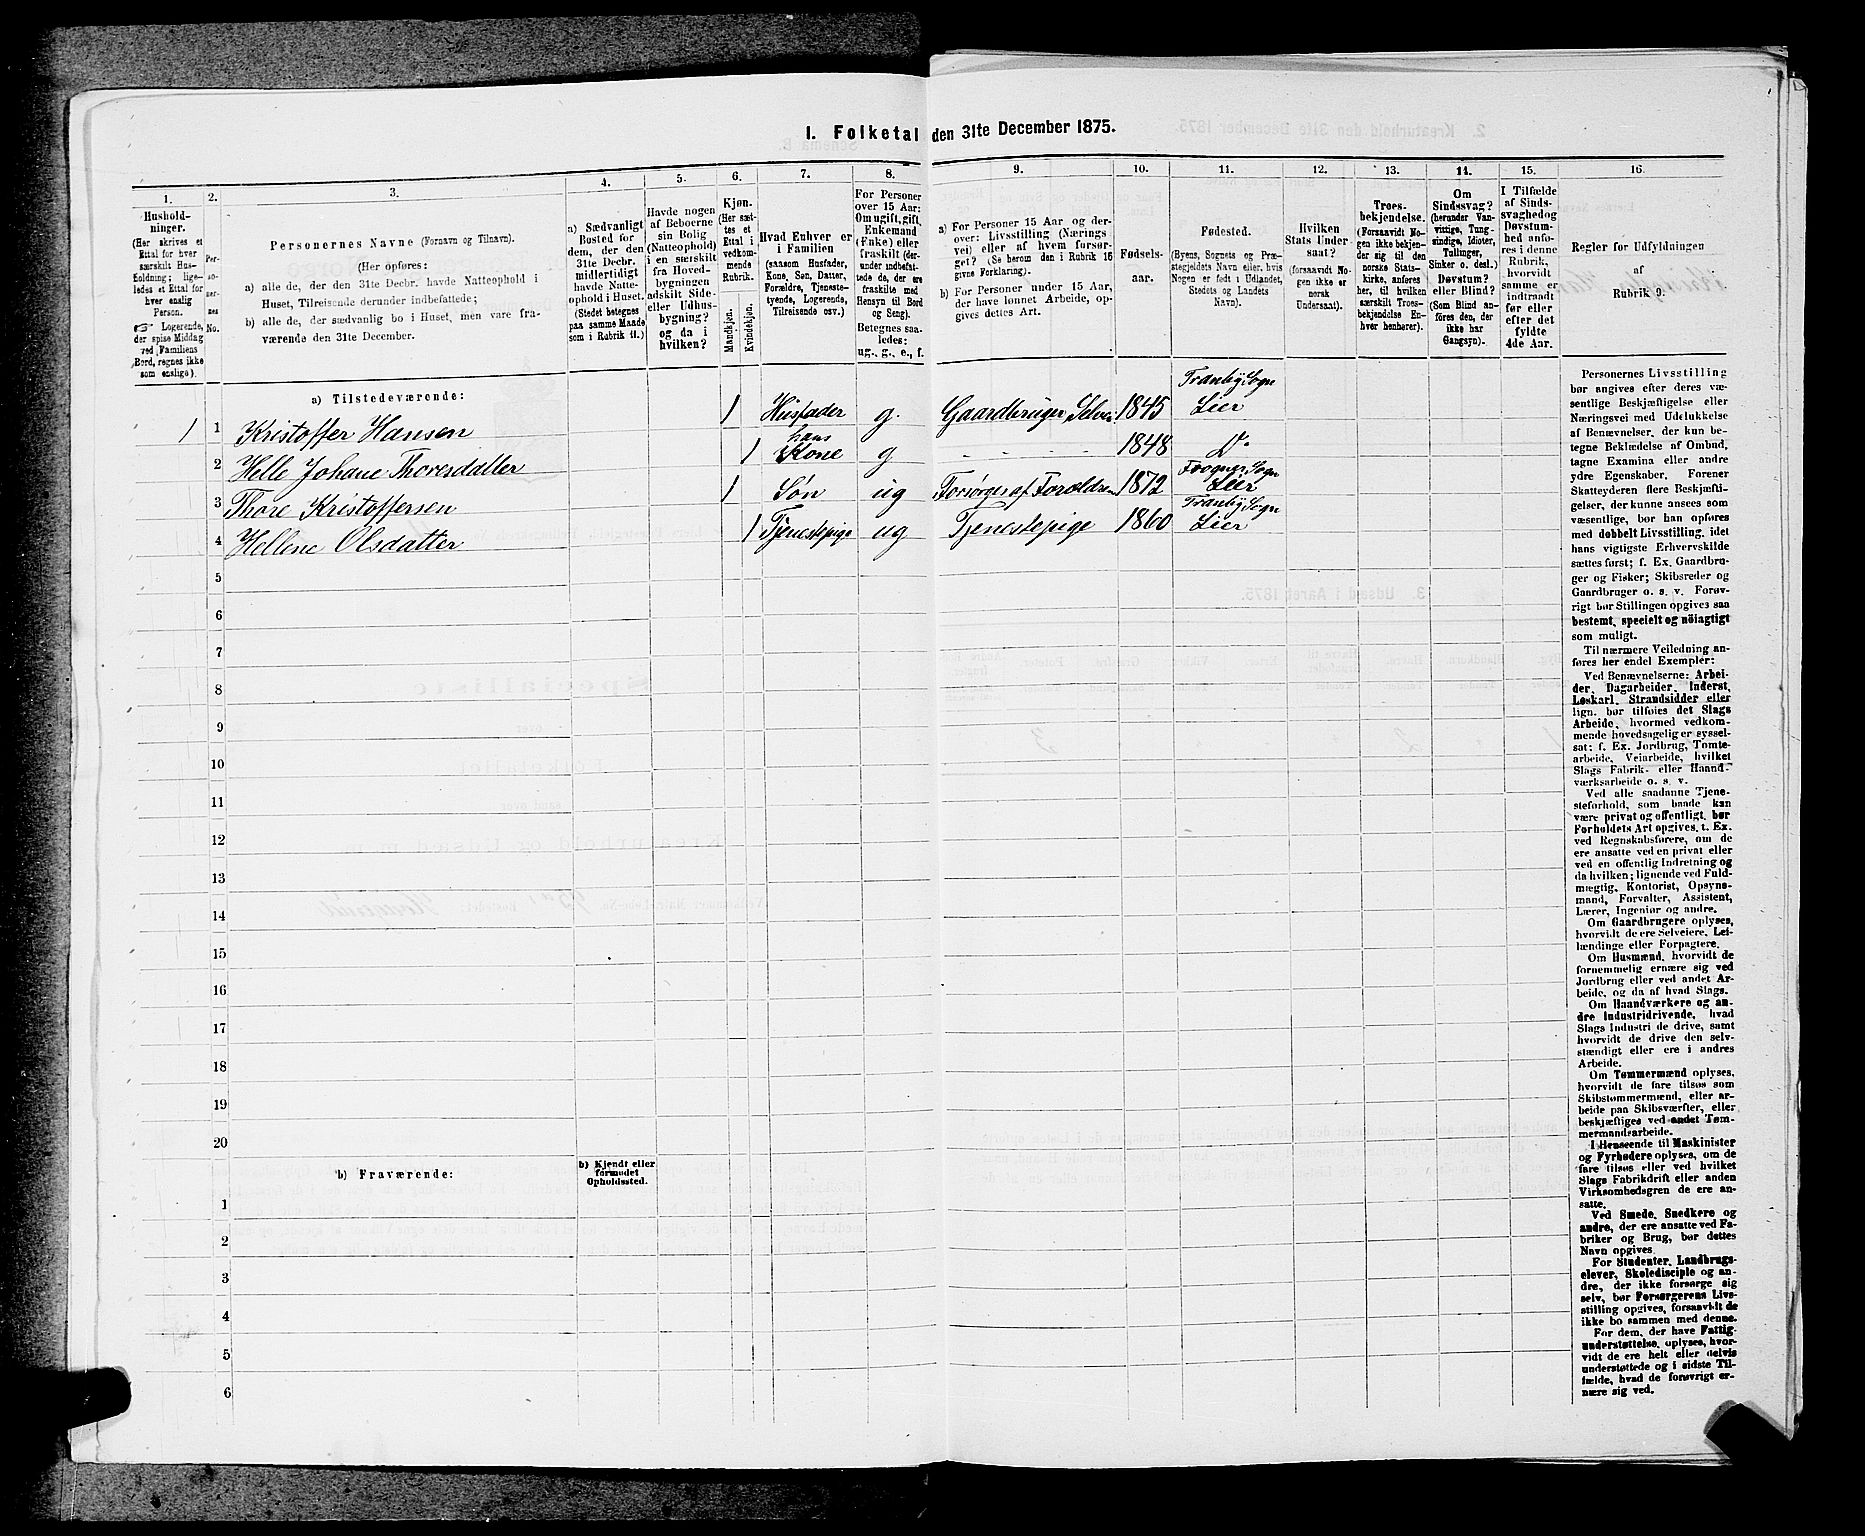 I. Folketal den 31te December 1875.
1.
Hushold-
ninger.
(Her skrives et
Ettal for hver
særskilt Hus-
holdning; lige-
ledes et Ettal for
hver enslig
Person.
☞ Logerende,
der spise Middag
ved Familiens
Bord, regnes ikke
som enslige).
2.
Per-
so-
ner-
nes
No.
3.
Personernes Navne (Fornavn og Tilnavn).
(Her opføres:
a) alle de, der den 31te Decbr. havde Natteophold i
Huset, Tilreisende derunder indbefattede;
b) alle de, der sædvanlig bo i Huset, men vare fra-
værende den 31te December.
4.
a) Sædvanligt
Bosted for
dem, der den
31te Decbr.
midlertidigt
havde Natte-
ophold i Huset.
(Stedet betegnes
paa samme Maade
som i Rubrik 11.)
5.
Havde nogen
af Beboerne
sin Bolig
(Natteophold)
i en særskilt
fra Hoved-
bygningen
adskilt Side-
eller Udhus-
bygning?
og da i
hvilken?
6.
Kjøn.
(Her sæt-
tes et
Ettal i
vedkom-
mende
Rubrik.
Mandkjøn.
Kvindekjøn.
7.
Hvad Enhver er
i Familien
(saasom Husfader,
Kone, Søn, Datter,
Forældre, Tjeneste-
tyende, Logerende,
Tilreisende osv.)
8.
For Personer
over 15 Aar:
Om ugift, gift,
Enkemand
(Enke) eller
fraskilt (der-
under indbefat-
tede de, der ere
fraskilte med
Hensyn til Bord
og Seng).
Betegnes saa-
ledes:
ug., g., e., f.
9.
a) For Personer 15 Aar og der-
over: Livsstilling (Nærings-
vei) eller af hvem forsør-
get? (Se herom den i Rubrik 16
givne Forklaring).
b) For Personer under 15 Aar,
der have lønnet Arbeide, op-
gives dettes Art.
10.
Fødsels-
aar.
11.
Fødested.
(Byens, Sognets og Præ-
stegjeldets Navn eller, hvis
Nogen er født i Udlandet,
Stedets og Landets
Navn).
12.
Hvilken
Stats Under-
saat?
(forsaavidt No-
gen ikke er
norsk
Undersaat).
13.
Troes-
bekjendelse.
(Forsaavidt No-
gen ikke bekjen-
der sig til den
norske Stats-
kirke, anføres
her, til hvilken
særskilt Troes-
bekjendelse En-
hver henhører).
14.
Om
Sindssvag?
(herunder Van-
vittige, Tung-
sindige, Idioter,
Tullinger,
Sinker o. desl.)
Døvstum?
eller Blind?
(Som Blind an-
føres den, der
ikke har
Gangsyn).
15.
I Tilfælde
af Sinds-
svaghed og
Døvstum-
hed anfø-
res i denne
Rubrik,
hvorvidt
samme er
indtraadt
før eller
efter det
fyldte
4de Aar.
16.
Regler for Udfyldningen
af
Rubrik 9.
a) Tilstedeværende:
1 1 Kristoffer Hansen 1 Husfader g. Gaardbruger, Selvei. 1845 Tranby Sogn
Lier
2 Helle Johane Thoresdatter 1 hans
Kone g 1848 Do
3 Thore Kristoffersen 1 Søn ug Forsørges af Forældren 1872 Frogner Sogn
Lier
4 Hellene Olsdatter 1 Tjenestepige ug Tjenestepige 1860 Tranby Sogn
Lier
5
6
7
8
9
10
11
12
13
14
15
16
17
18
19
20
b) Fraværende:
b) Kjendt eller
formodet
Opholdssted.
1
2
3
4
5
6
Personernes Livsstilling
bør angives efter deres væ-
sentlige Beskjæftigelse eller
Næringsvei med Udelukkelse
af Benævnelser, der kun be-
tegne Beklædelse af Ombud,
tagne Examina eller andre
ydre Egenskaber. Forener
Skatteyderen flere Beskjæfti-
gelser, der kunne ansees som
væsentlige, bør han opføres
med dobbelt Livsstilling, idet
hans vigtigste Erhvervskilde
sættes først; f. Ex. Gaardbru-
ger og Fisker; Skibsreder og
Gaardbruger o. s. v. Forøv-
rigt bør Stillingen opgives saa
bestemt, specielt og nöiagtigt
som muligt.
Til nærmere Veiledning an-
føres her endel Exempler:
Ved Benævnelserne: Arbei-
der, Dagarbeider, Inderst,
Løskarl, Strandsidder eller
lign. bør tilføies det Slags
Arbeide, hvormed vedkom-
mende hovedsagelig er syssel-
sat; f. Ex. Jordbrug, Tomte-
arbeide, Veiarbeide, hvilket
Slags Fabrik- eller Haand-
værksarbeide o. s. v.
Ved alle saadanne Tjene-
steforhold, som baade kan
være privat og offentligt, bør
Forholdets Art opgives, t. Ex.
ved Regnskabsførere, om de
ere ansatte ved en privat eller
ved en offentlig Indretning og
da hvilken; lignende ved Fuld-
mægtig, Kontorist, Opsyns-
mand, Forvalter, Assistent,
Lærer, Ingeniør og andre.
Om Gaardbrugere oplyses,
hvorvidt de ere Selveiere, Lei-
lændinge eller Forpagtere.
Om Husmænd, hvorvidt de
fornemmelig ernære sig ved
Jordbrug eller ved andet Ar-
beide, og da af hvad Slags.
Om Haandværkere og an-
dre Industridrivende, hvad
Slags Industri de drive, samt
hvorvidt de drive den selv-
stændigt eller ere i andres
Arbeide.
Om Tømmermænd oplyses,
hvorvidt de fare tilsøs som
Skibstømmermænd, eller ar-
beide paa Skibsværfter, eller
beskjæftiges ved andet Tøm-
mermandsarbeide.
I Henseende til Maskinister
og Fyrbødere oplyses, om de
fare tilsøs eller ved hvilket
Slags Fabrikdrift eller anden
Virksomhedsgren de ere an-
satte.
Ved Smede, Snedkere og
andre, der ere ansatte ved Fa-
briker og Brug, bør dettes
Navn opgives.
For Studenter, Landbrugs-
elever, Skoledisciple og an-
dre, der ikke forsørge sig
selv, bør Forsørgerens Livs-
stilling opgives, forsaavidt de
ikke bo sammen med denne.
For dem, der have Fattig-
understøttelse, oplyses, hvor-
vidt de ere helt eller delvis
understøttede og i sidste Til-
fælde, hvad de forøvrigt er-
nære sig ved.